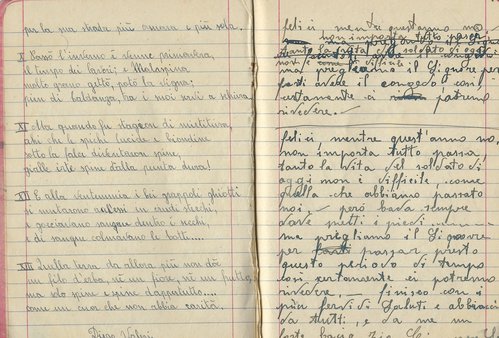 per la sua strada più amara e più sola.
X Passò l'inverno e venne primavera,
il tempo dei lavori; e Malaspina
molto grano gettò, potò la vigna;
pien di baldanza, tra i suoi servi a schiera.
XI Ma quando fu stagion di mietitura,
ahi che le spighe lucide e bionde
sotto la falce diventaron spine,
gialle irte spine dalla punta dura!
XII E alla vendemmia i bei grappoli ghiotti
si mutarono in aridi stecchi,
e gocciavano sangue dentro i secchi,
e di sangue colmavano le botti....
XIII Quella terra da allora più non dà
un filo d'erba, nè un fiore, nè un frutto,
ma solo spine e spine dappertutto....
come un cuor che non abbia carità.
felici mentre quest'anno no
non importa tutto passa
tanto la vita del soldato di oggi
non è difficile
ma preghiamo il Signore per
certamente ci potremo
rivedere.
felici, mentre quest'anno no,
non importa tutto passa
tanto la vita del soldato di
oggi non è difficile, come
quella che abbiamo passato
noi, però bada sempre
dove metti i piedi
ma preghiamo il Signore
per passar presto
questo periodo di tempo
così certamente ci potremo
rivedere, finisco con
più fervidi saluti e abbracci
da tutti, e da me un
forte bacio